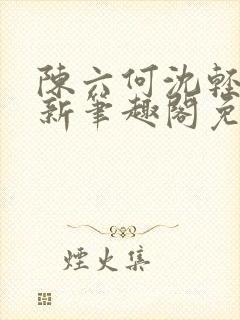 陳六何沈輕
新筆趣閣免
煙火集